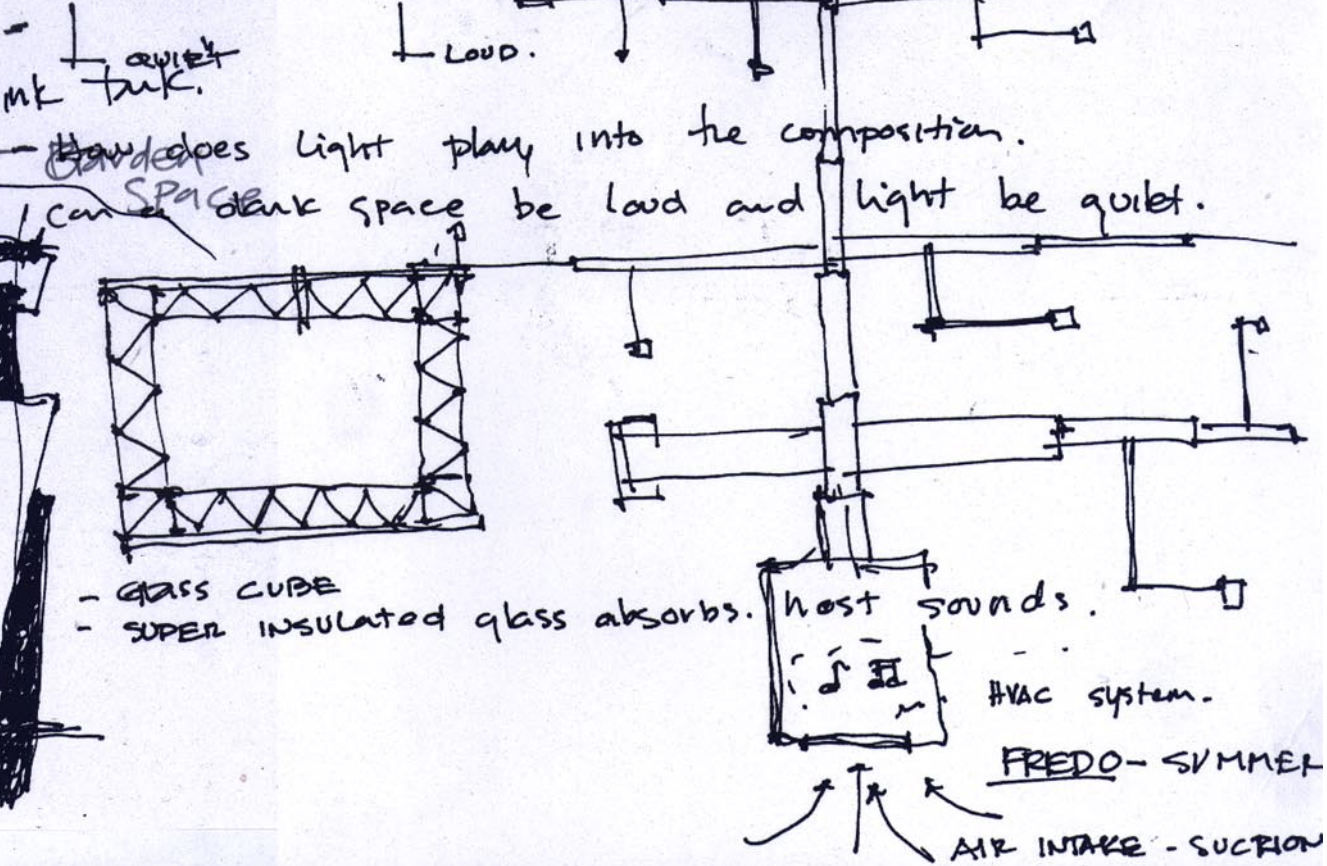 QUIET
LOUD.
- How does light play into the composition.
Garden
Space
can a dark space be loud and light be quiet.
- GLASS CUBE
- SUPER INSULATED glass absorbs. host sounds.
HVAC system.
FREDO - SUMMER
AIR INTAKE - SUCTION